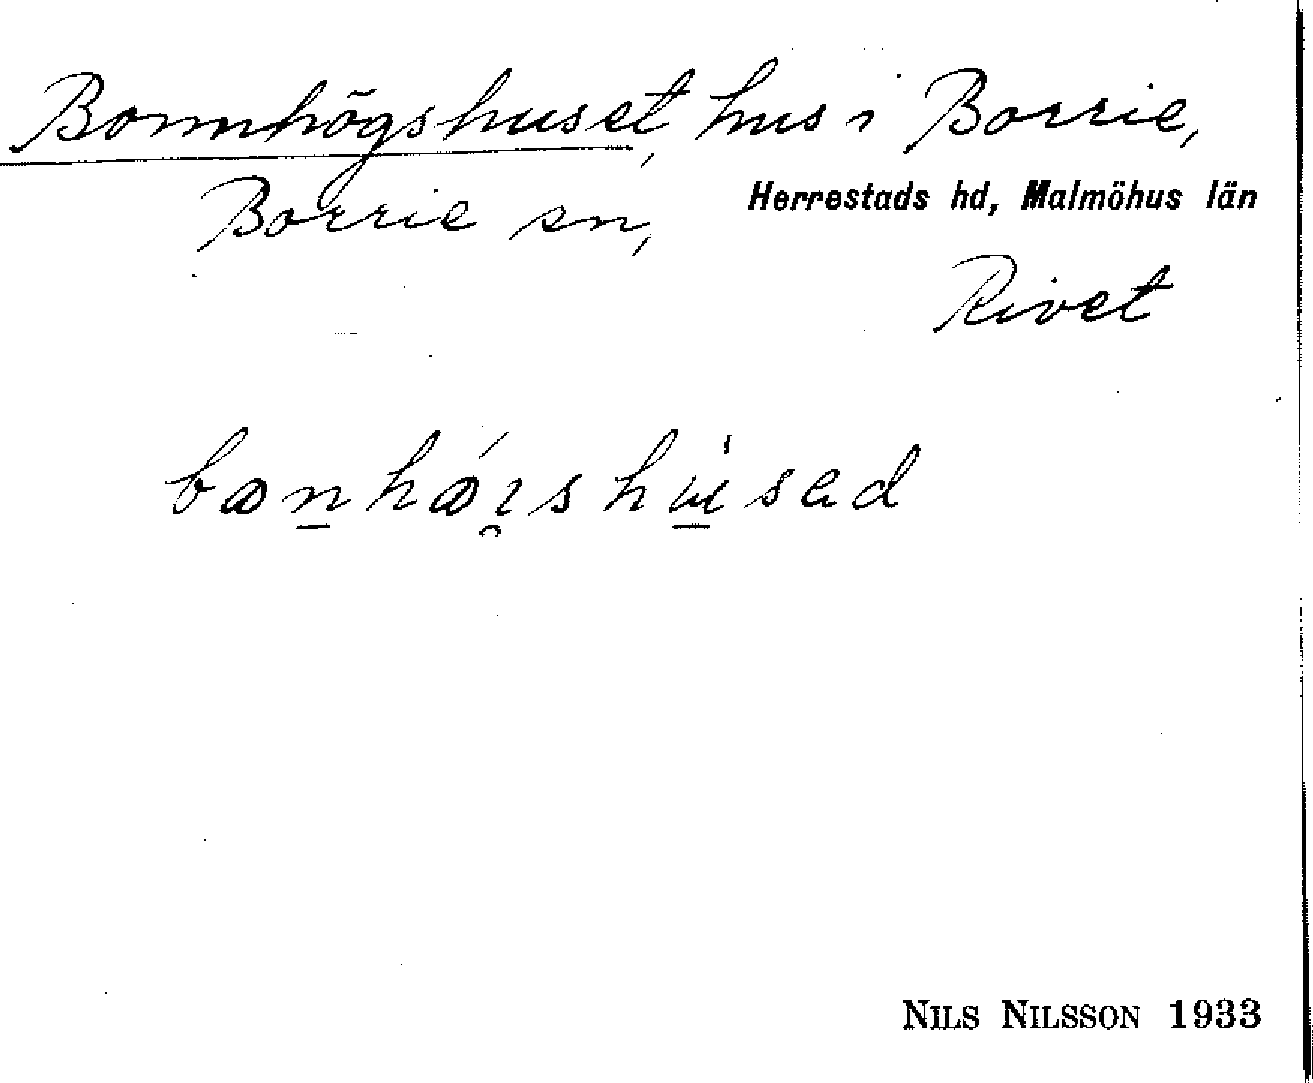 Bonnhögshuset, hus i Borrie,
Borrie sn, Herrestads hd, Malmöhus län
Rivet
NILS NILSSON 1933